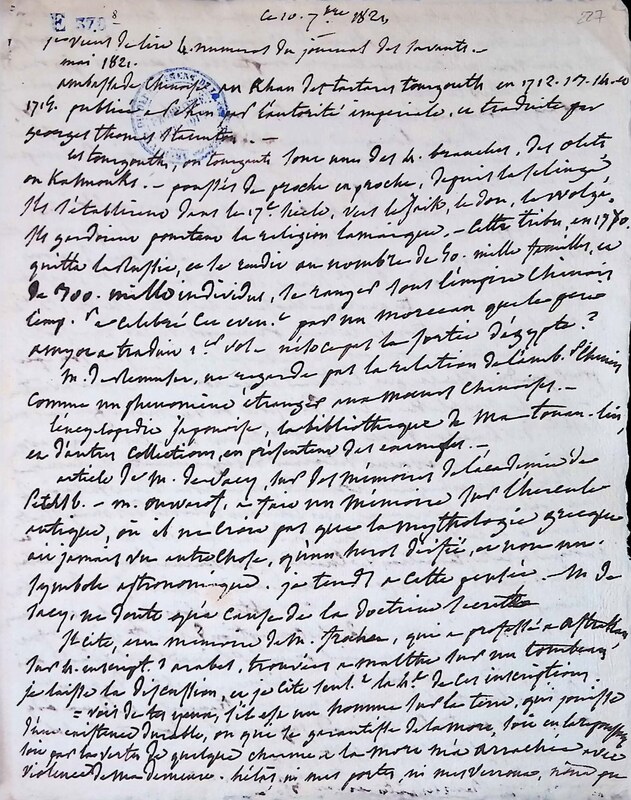 E 378 8
ce 10. 7bre 1821.
227
je viens de lire 4. numeros du journal des savants. -
mai 1821.
ambassade chinoise au Khan des tartares tourgouths en 1712. 13. 14. et
1715. publiée a Pekin par l'autorité imperiale, et traduite par
georges thomas Staunton. -
les tourgouths, ou tourgauts sont une des 4. branches, des olets
ou Kalmouks. - poussés de proche en proche, depuis la Selinga
Ils s'établirent dans le 17e siecle, vers le Jaik, le don, le Wolga.
Ils garderent pourtant la religion lamaique. - Cette tribu, en 1770
quitta la Russie, et se rendit au nombre de 50. mille familles, et
de 300. mille individus, se ranger sous l'empire Chinois
l'emp. a celebré cet even.t par un morceau que le pere
amyot a traduit 1er vol. n'est-ce pas la sortie d'égypte?
M. de Remusat, ne regarde pas la relation de l'emb. Chinois
Comme un phenomène étranger aux moeurs Chinoises. -
l'encyclopedie Japonoise, la bibliotheque de Ma-touan-lin,
et d'autres collections, en présentent des exemples. -
article de M. de Sacy, sur des mémoires de l'academie de
Petersb. - M. Ouwarof, a fait un mémoire sur l'hercule
antique, où il ne croit pas que la mythologie grecque
ait jamais vu autre chose, qu'un heros déifié, et non un
symbole astronomique. je tends a cette pensée. - M. de
Sacy, ne doute qu'a cause de la doctrine secrette
Il cite, un mémoire de M. fraehn, qui a professé a Astrakan
sur 4. inscript. arabes, trouvées a malthe sur un tombeau
je laisse la discussion, et je cite seul.t la 4e. de ces inscriptions.
= vois de tes yeux, s'il est un homme sur la terre, qui jouisse
d'une existence durable, ou que se garantisse de la mort, soit en la repoussant
soit par la vertu de quelque charme a la mort m'a arrachée avec
violence de ma demeure. helas, ni mes portes, ni mes verroux, n'ont pu